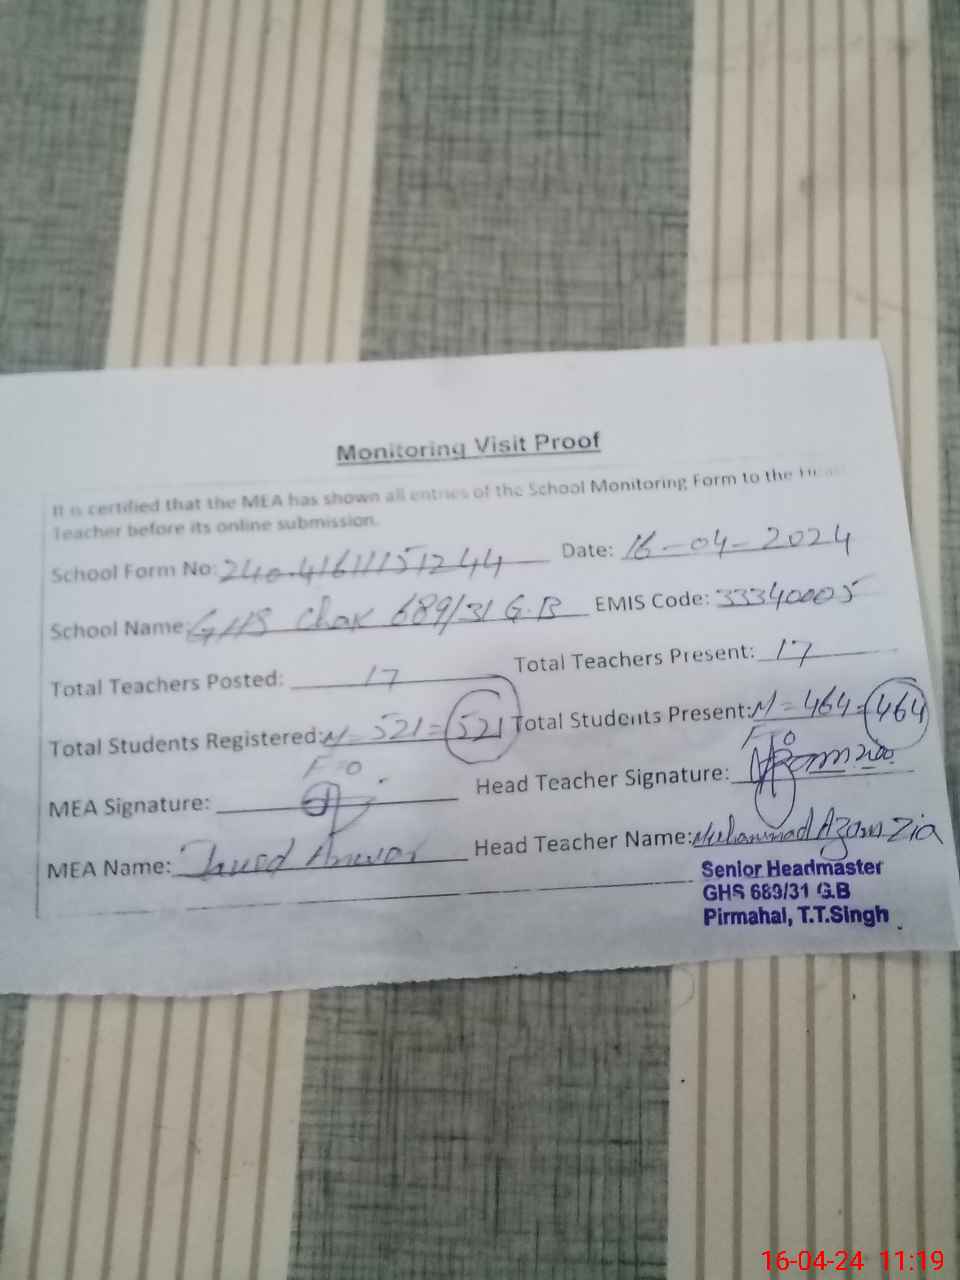 Monitoring Visit Proof
It is certified that the MEA has shown all entries of the School Monitoring Form to the Head
Teacher before its online submission.
School Form No: 240416111151244 Date: 16-04-2024
School Name: GHS Chak 689/31 G.B EMIS Code: 33340005
Total Teachers Posted: 17 Total Teachers Present: 17
Total Students Registered: M = 521 = 521 Total Students Present: M = 464 = 464
F = 0 F = 0
MEA Signature: Head Teacher Signature:
MEA Name: Anwar Head Teacher Name: Muhammad Azam Zia
Senior Headmaster
GHS 689/31 G.B
Pirmahal, T.T.Singh
16-04-24 11:19